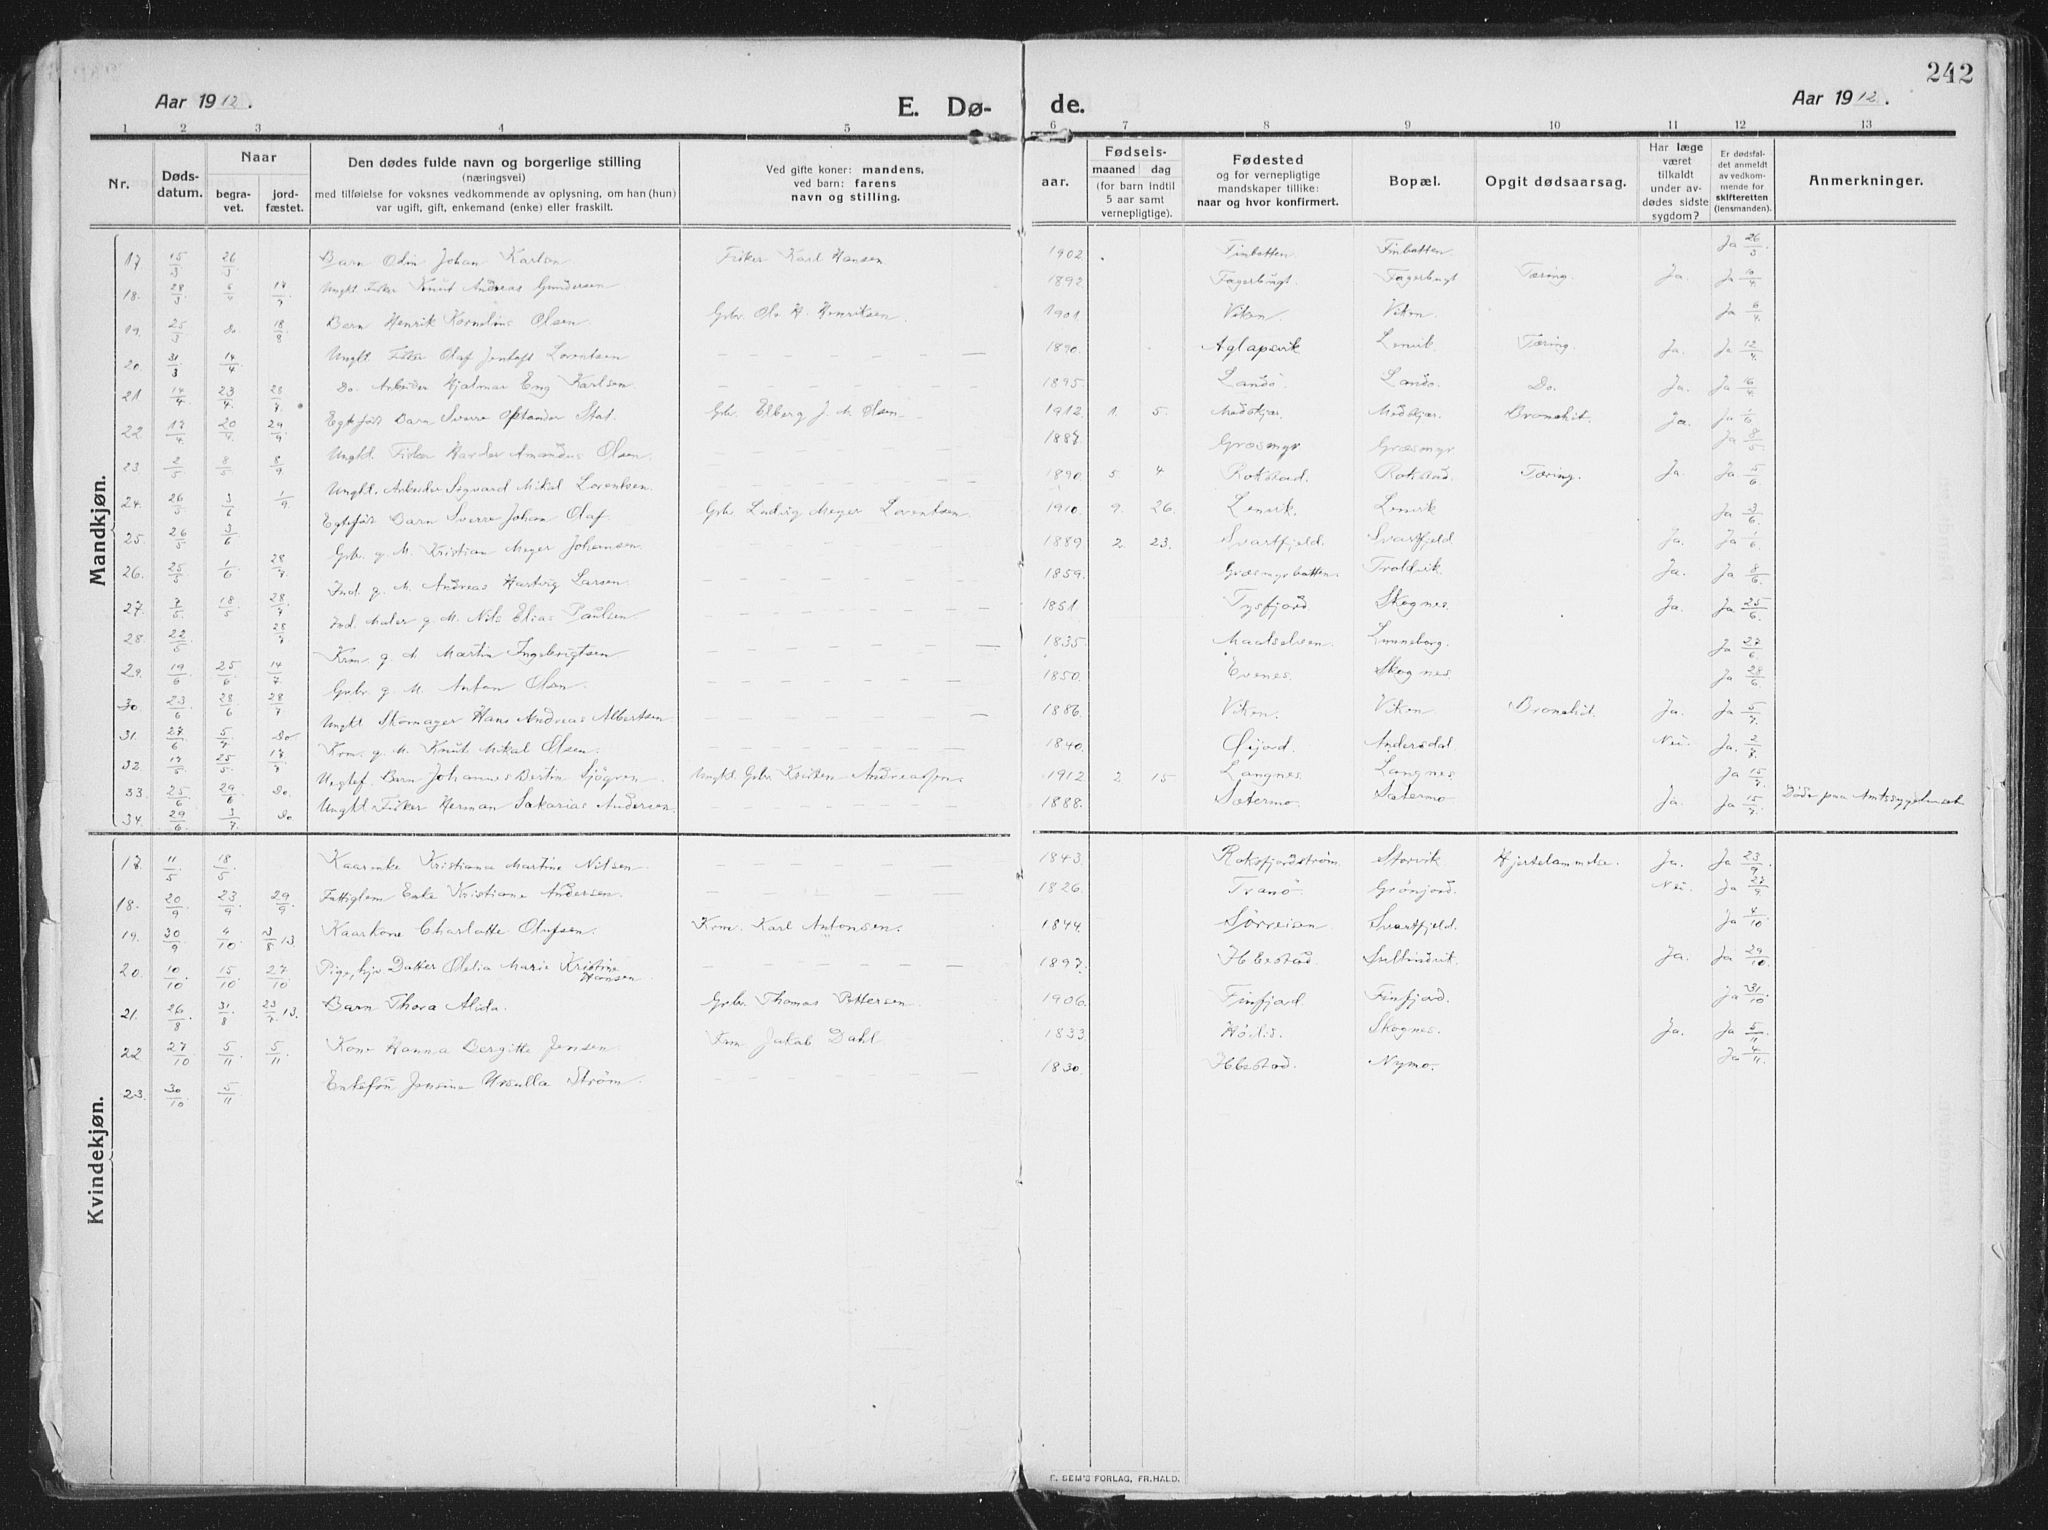 242
Aar 1912.
E. Dø-
de.
Aar 1912.
1 2 3 4 5 6 7 8 9 10 11 12 13
Nr.
Døds-
datum.
Naar
begra-
vet.
jord-
fæstet.
Den dødes fulde navn og borgerlige stilling
(næringsvei)
med tilføielse for voksnes vedkommende av oplysning, om han (hun)
var ugift, gift, enkemand (enke) eller fraskilt.
Ved gifte koner: mandens,
ved barn: farens
navn og stilling.
aar.
Fødsels-
maaned dag
(for barn indtil
5 aar samt
vernepligtige).
Fødested
og for vernepligtige
mandskaper tillike:
naar og hvor konfirmert.
Bopæl.
Opgit dødsaarsag.
Har læge
været
tilkaldt
under av-
dødes sidste
sygdom?
Er dødsfal-
det anmeldt
av vedkom-
mende for
skifteretten
(lensmanden).
Anmerkninger.
Mandkjøn.
17 15/3 26/3 Barn Odin Johan Karlsen Fisker Karl Hansen 1902 Finbotten Finbotten Ja 26/3
18. 28/3 6/4 14/7 Ungk. Fisker Knut Andreas Gundersen 1892 Fagerbugt. Fagerbugt Tæring. Ja. Ja 10/4
19. 25/3 Do. 18/8 Barn Henrik Kornelius Olsen. Gbr. Ole H. Henriksen. 1901. Viken Viken Ja 6/4
20. 31/3 14/4 Ungk. Fisker Olaf Jentoft Lorentsen 1890. Aglapsvik Lenvik Tæring. Ja. Ja 12/4
21 14/4 23/4 28/7 Do. Arbeider Hjalmar Eng Karlsen. 1895. Landö Landö. Do. Ja. Ja 16/4
22. 17/4 20/4 29/9 Egtefødt Barn Sverre Østander Stat. Gbr. Elberg J. M. Olsen 1912 1. 5. Medskjær. Medskjær. Bronchit. Ja. Ja 1/6
23. 2/5 8/5 8/9 Ungkl. Fisker Harder Amandus Olsen. 1887. Græsmyr Græsmyr Ja 8/5
24. 26/5 3/6 1/9 Ungkt. Arbeider Sigvard Mikal Lorentsen. 1890 5. 4 Rokstad. Rokstad. Tæring. Ja. Ja 5/6
25. 26/5 3/6 Egtefødt Barn Sverre Johan Olaf Gbr Ludvig Meyer Lorentsen 1910. 9. 26. Lenvik. Lenvik Ja 3/6
26. 25/5 1/6 28/7 Gbr. g. M. Kristian Meyer Johansen. 1889 2. 23. Svartfjeld. Svartfjeld Ja. Ja 1/6
27. 7/5 18/5 28/7 Ind. g. M. Andreas Hartvig Larsen. 1859. Græsmyrbotten. Troldvik Ja. Ja 8/6
28. 22/5 28/7 Ind. Maler g. M. Nils Elias Paulsen 1851. Tysfjord Skognes. Ja. Ja 25/6
29. 19/6 25/6 14/7 Krm. g. M. Martin Ingebrigtsen 1835 Maalselven. Lunneborg. Ja 27/6
30. 23/6 28/6 28/7 Gbr. g. M. Anton Olsen 1850. Evenes. Skognes. Ja 28/6
31. 27/6 5/7 Do Ungkl Skomager Hans Andreas Albertsen 1886 Viken. Viken Bronchit. Ja. Ja 5/7
32. 17/5 25/5 17/7 Krm. g. M. Knut Mikal Olsen. 1840. Øijord. Andersdal Nei. Ja. 2/7
33. 25/6 29/6 Do. Ungtef. Barn Johannes Bertin Sjögren. Ungkl. Gbr. Kristen Andreassen. 1912 2. 15 Langnes. Langnes Ja 15/7
34. 29/6 3/7 Do Ungkl Fisker Herman Sakarias Andersen 1888. Sætermo. Sætermo Ja. Ja 15/7 Døde paa Amtssygehuset
Kvindekjøn.
17 11/5 18/5 Kaarenke Kristiana Martine Nilsen 1843. Roksfjordstrøm. Storvik Hjertelammelse. Ja. Ja 23/9
18. 20/9 23/9 29/9 Fattiglem Enke Kristiane Andersen. 1826. Tranö Grönjord. Nei. Ja 27/9
19. 30/9 4/10 3/8 13 Kaarkone Charlotte Olufsen. Krm. Karl Antonsen. 1844. Sörreisen Svartfjeld. Ja 4/10
20. 10/10 15/10 27/10 Pige, hjv Datter Ofelia Marie Kristine Hansen. 1897. Ibbestad. Sultindvik Ja. Ja 29/10
21. 26/8 31/8 23/7 13. Barn Thora Alida. Gbr. Thomas Pettersen 1906. Finfjord Finfjord. Ja 31/10
22 27/10 5/11 5/11 Kone Hanna Bergitte Jensen Krm Jakob Dahl 1833. Höilis. Skognes. Ja. Ja 5/11
23. 30/10 5/11 Enkefru Jensine Ursulla Strøm. 1830. Ibbestad. Nymo. Ja 4/11
E. SEM'S FORLAG, FR.HALD.